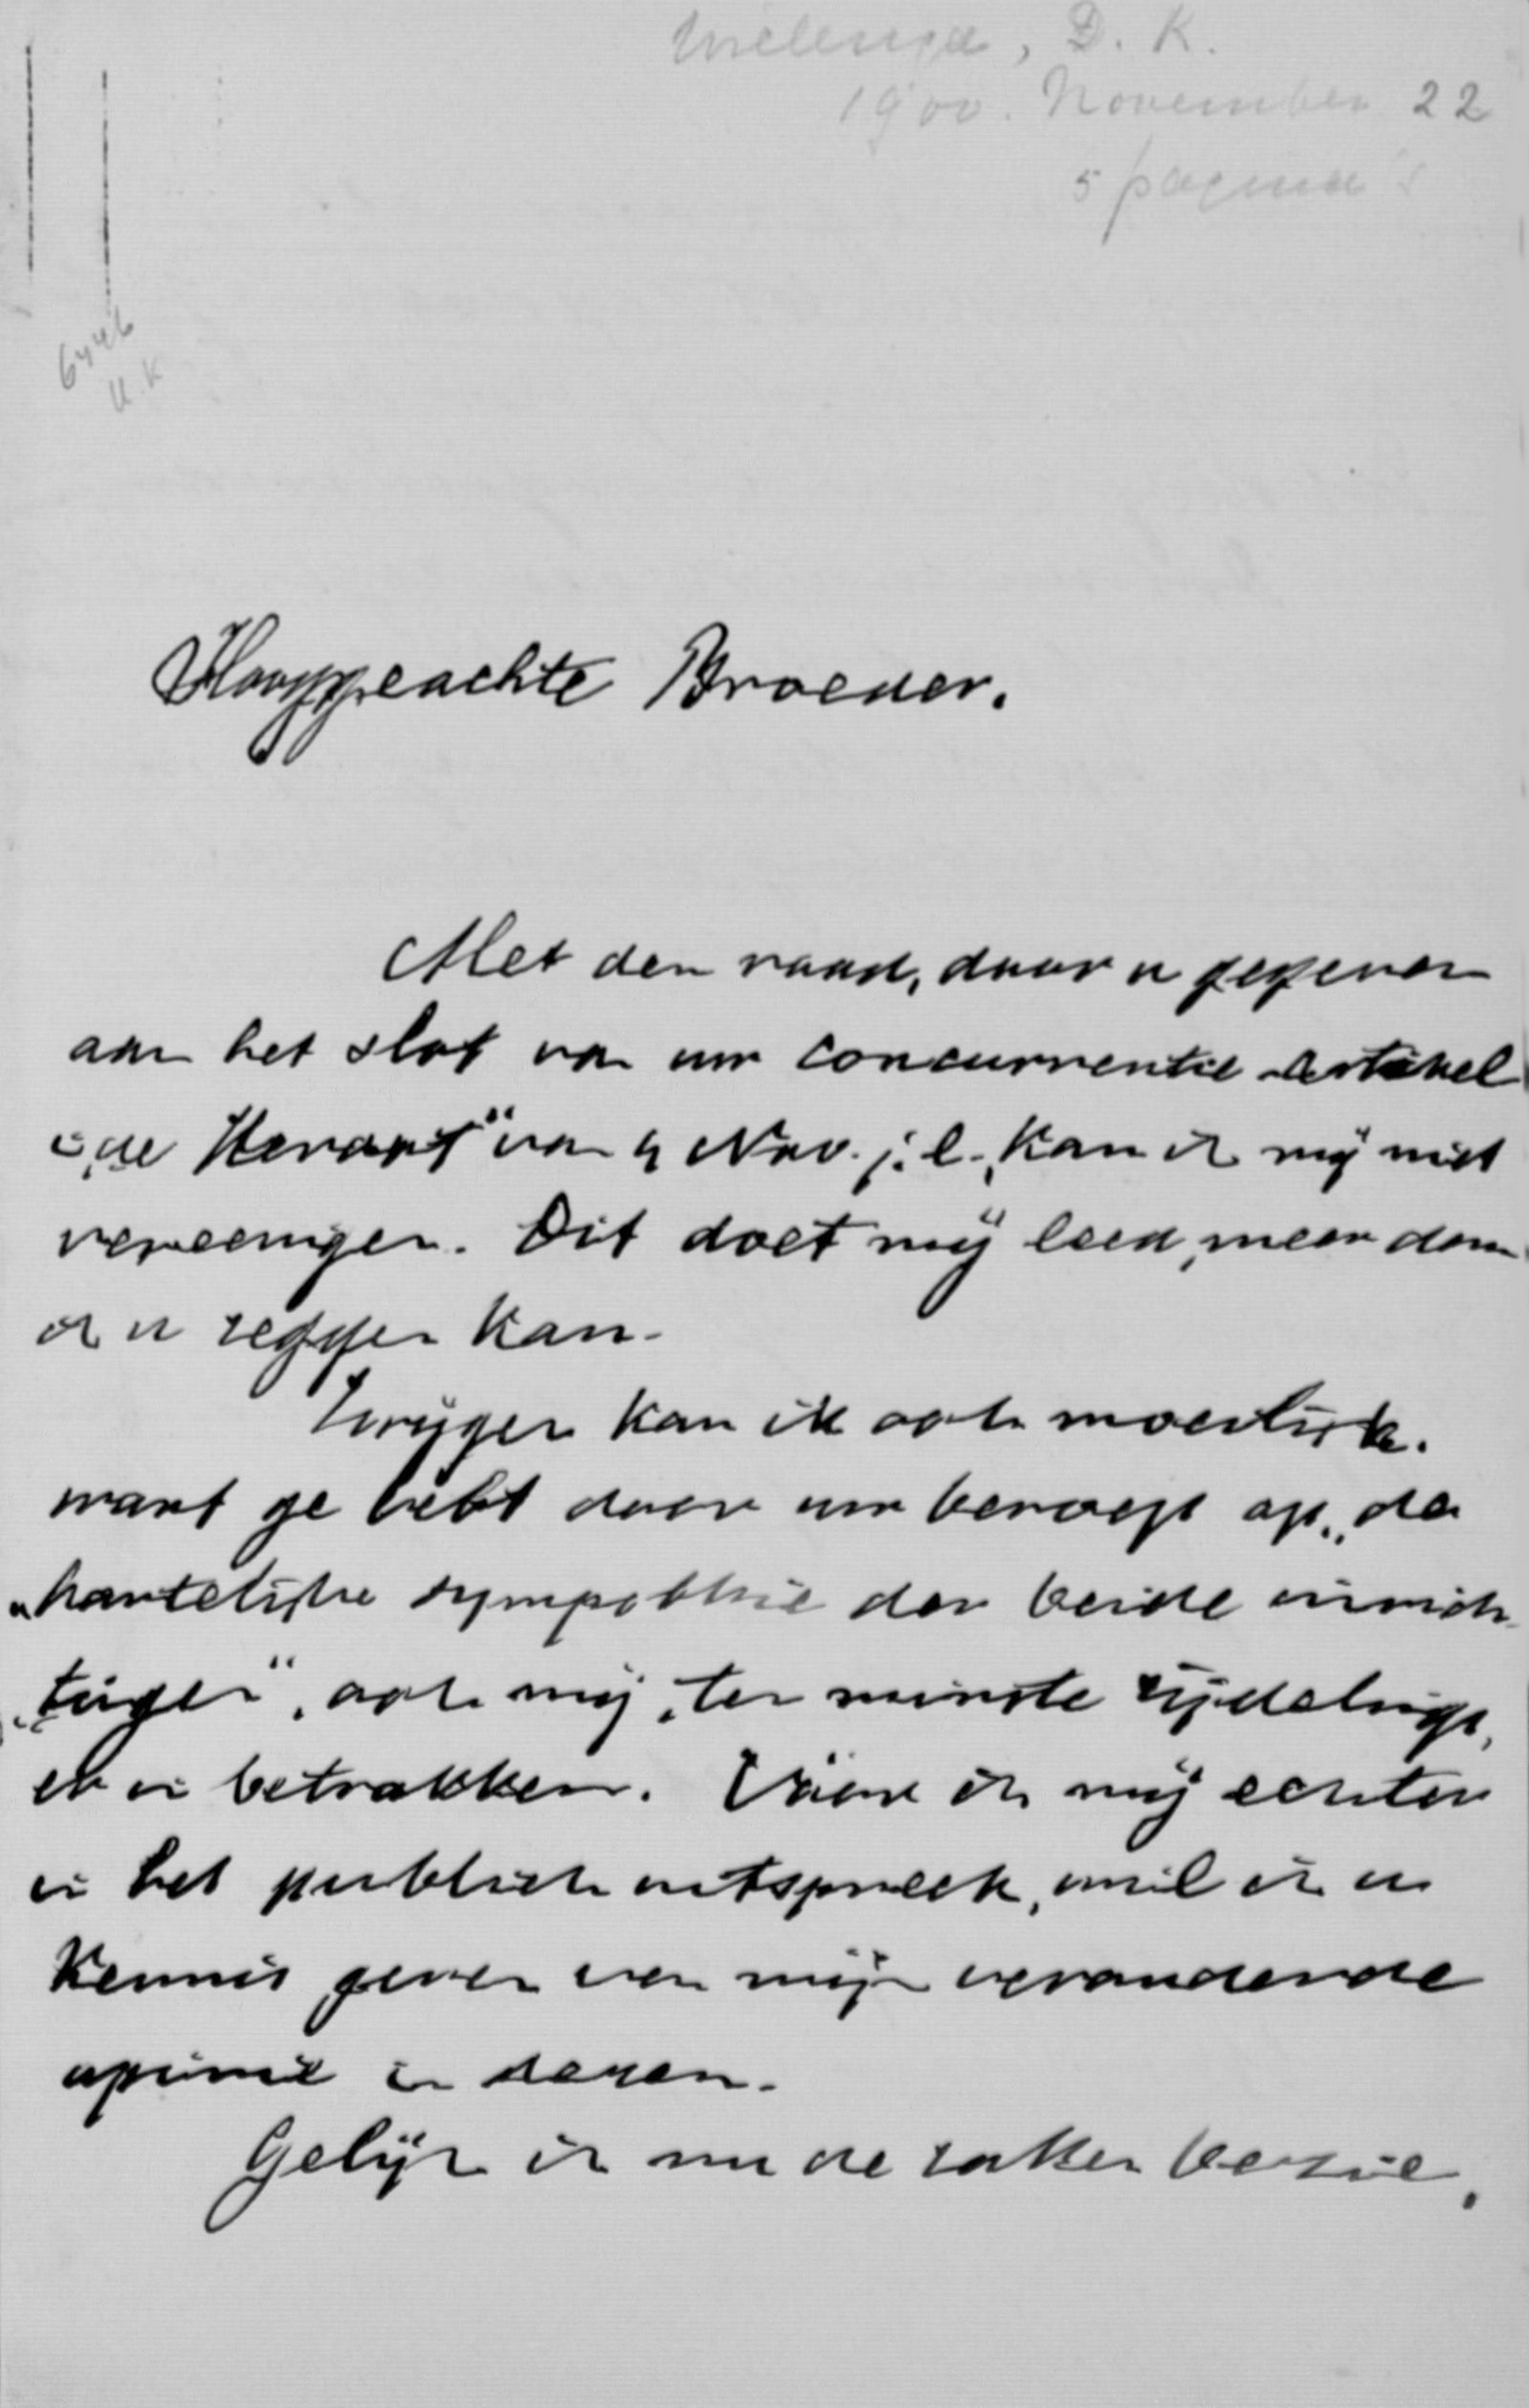 Wielenga, D. K.
1900. November 22
5 pagina's
6446
U. K
Hooggeachte Broeder.
Met den raad, door u gegeven
aan het slot van uw concurrentie-artikel
in "de Heraut" van 4 Nov. j.l., kan ik mij niet
vereenigen. Dit doet mij leed, meer dan
ik u zeggen kan.
Zwijgen kan ik ook moeilijk.
want ge hebt door uw beroep op "de
"hartelijke sympathie der beide inrich-
"tingen", ook mij, ten minste zijdelings,
er in betrokken. Vóór ik mij echter
in het publiek uitspreek, wil ik u
kennis geven van mijn veranderde
opinie in dezen.
Gelijk ik nu de zaken bezie,